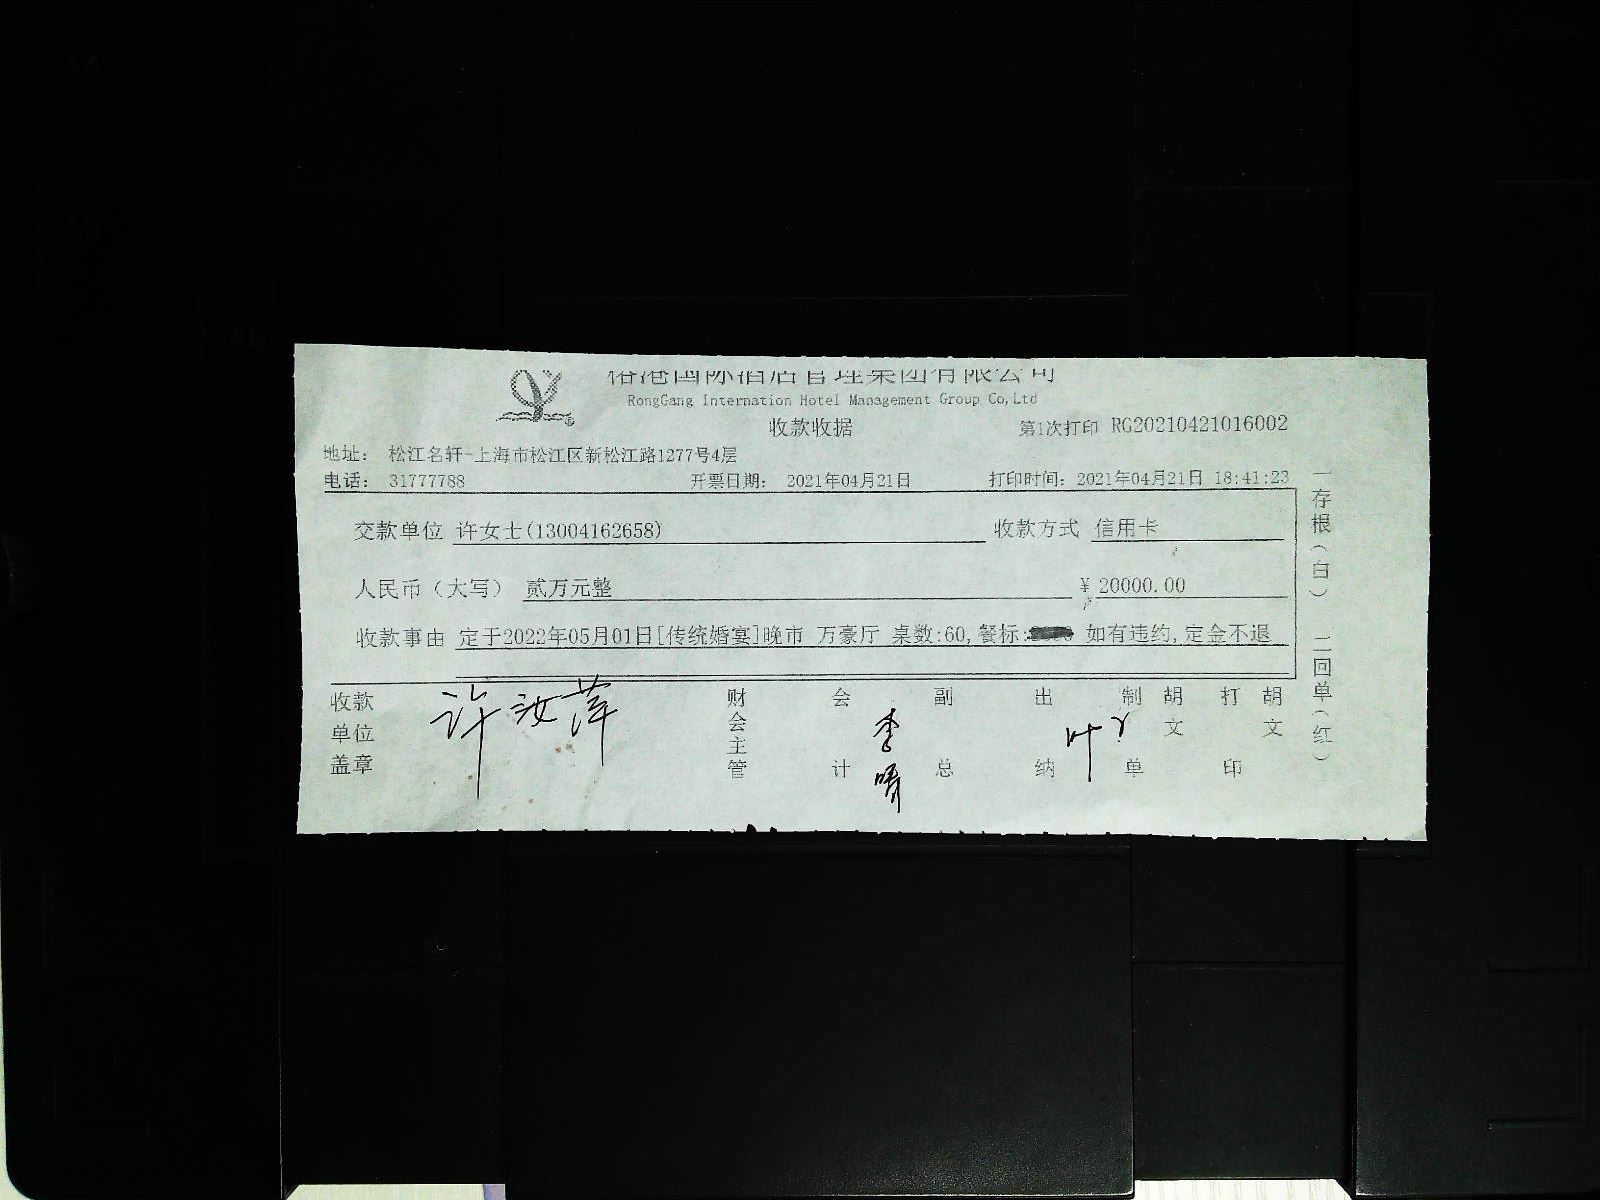 国际酒店管理集团有限公司
RongGang Internation Hotel Management Group Co,Ltd
收款收据
第1次打印 RG20210421016002
地址: 松江名轩-上海市松江区新松江路1277号4层
电话: 31777788 开票日期: 2021年04月21日 打印时间: 2021年04月21日 18:41:23
交款单位 许女士(13004162658) 收款方式 信用卡
人民币（大写） 贰万元整 ¥ 20000.00
收款事由 定于2022年05月01日[传统婚宴]晚市 万豪厅 桌数:60,餐标: 如有违约,定金不退
收款单位盖章 许汝萍 财会主管 会计 李 副总 出纳 叶 制单 胡文 打印 胡文
一存根(白) 二回单(红)